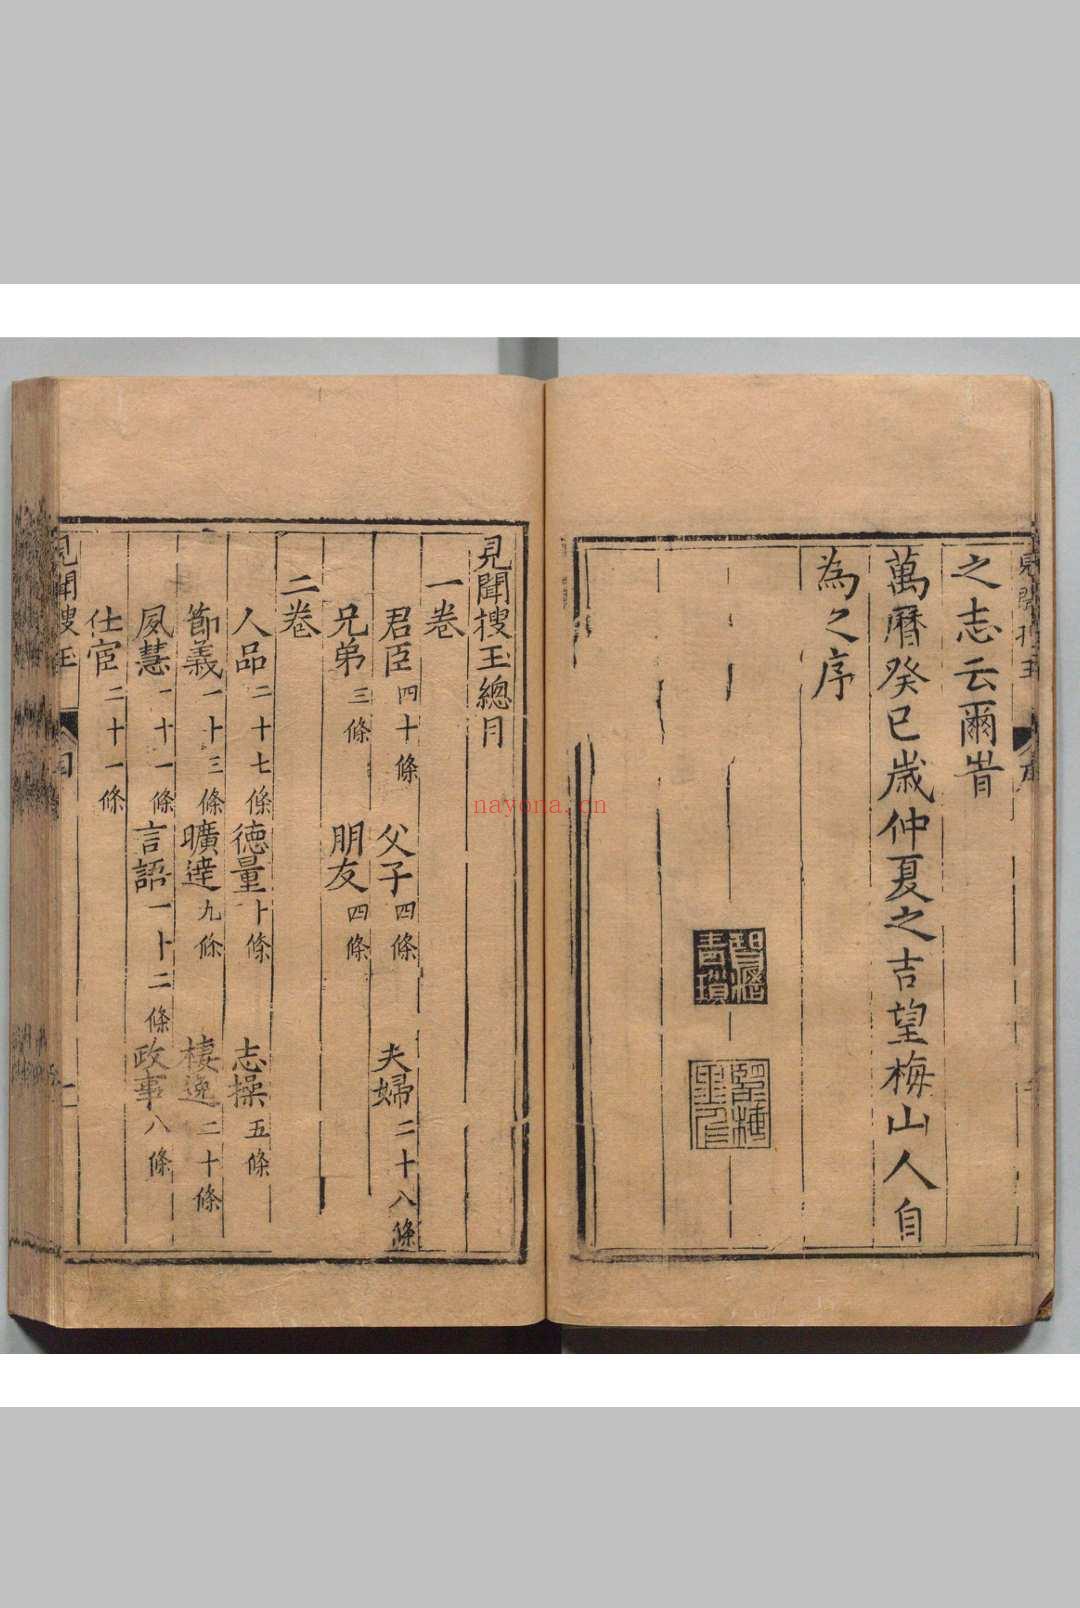 之志云爾旹
萬曆癸巳歲仲夏之吉望梅山人自
為之序
見聞搜玉總目
一卷
君臣四十條 父子四條 夫婦二十八條
兄弟三條 朋友四條
二卷
人品二十七條 德量十條 志操五條
節義一十三條 曠達九條 棲逸二十條
夙慧一十一條 言語一十二條 政事八條
仕宦二十一條
見聞搜玉
nayona.cn